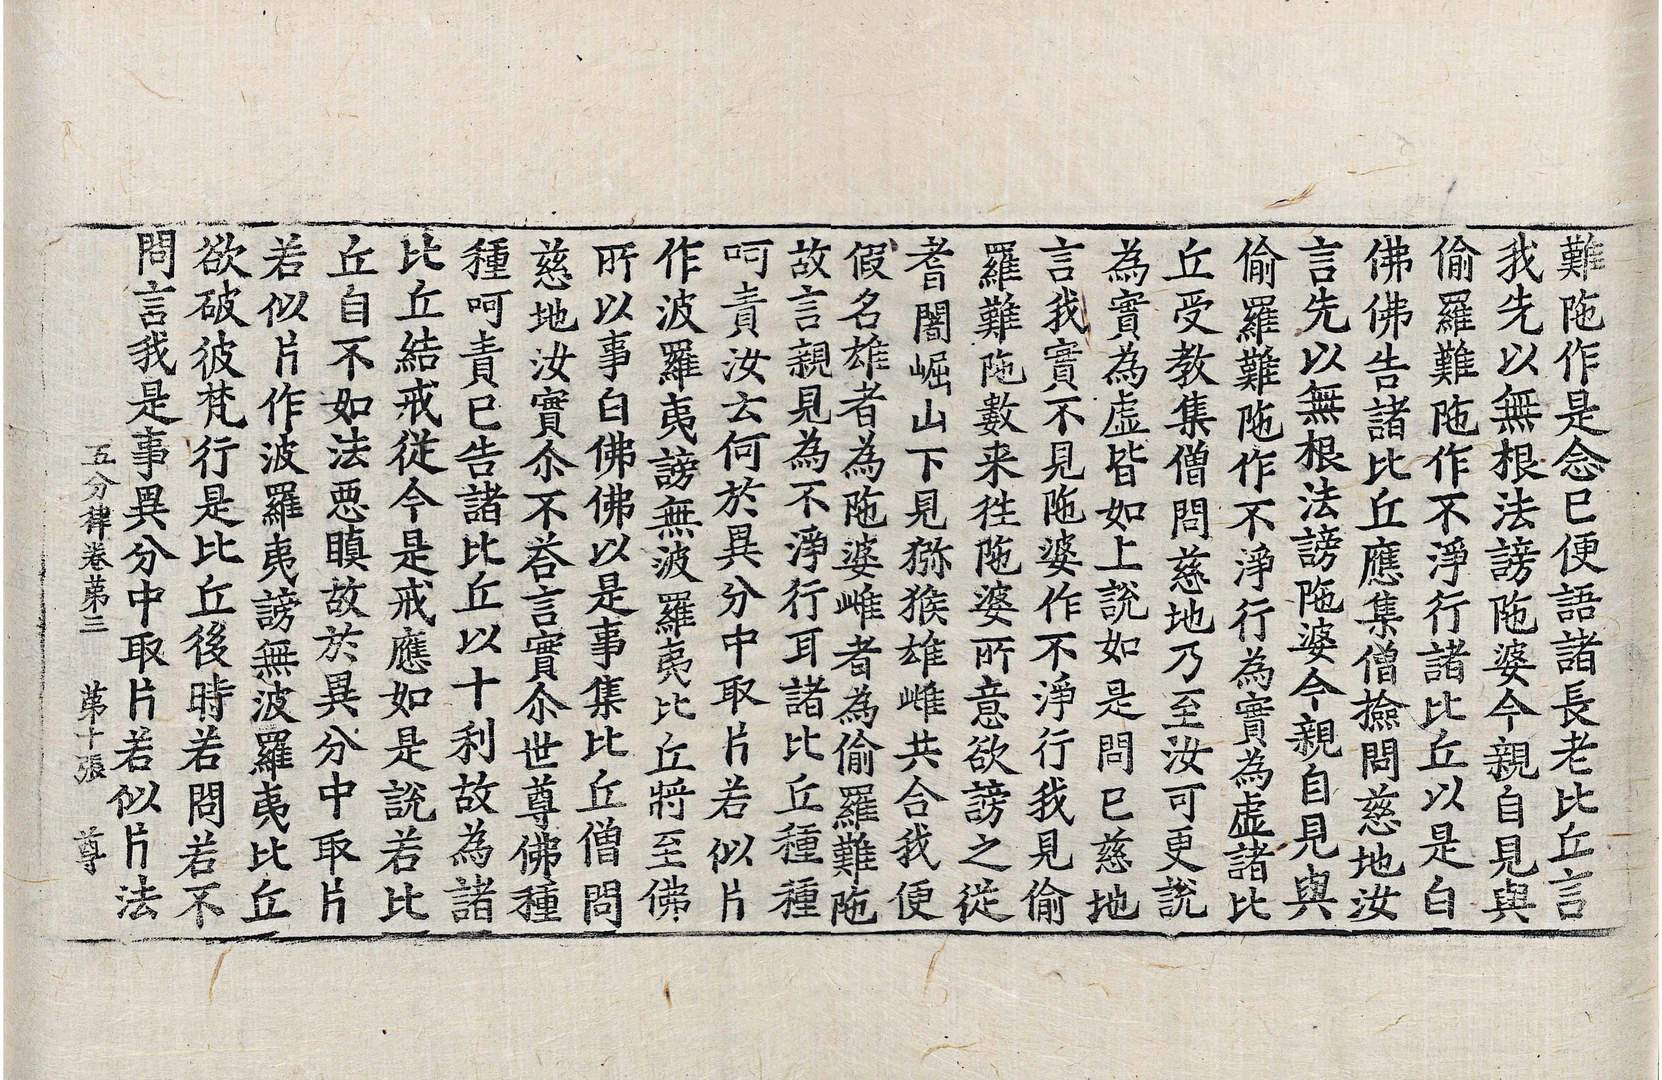 難陁作是念已便語諸長老比丘言
我先以無根法謗陁婆今親自見與
偷羅難陁作不淨行諸比丘以是白
佛佛告諸比丘應集僧撿問慈地汝
言先以無根法謗陁婆今親自見與
偷羅難陁作不淨行為實為虛諸比
丘受教集僧問慈地乃至汝可更說
為實為虛皆如上說如是問已慈地
言我實不見陁婆作不淨行我見偷
羅難陁數来徃陁婆所意欲謗之從
耆闍崛山下見猕猴雄雌共合我便
假名雄者為陁婆雌者為偷羅難陁
故言親見為不淨行耳諸比丘種種
呵責汝云何於異分中取片若似片
作波羅夷謗無波羅夷比丘將至佛
所以事白佛佛以是事集比丘僧問
慈地汝實尒不荅言實尒世尊佛種
種呵責已告諸比丘以十利故為諸
比丘結戒從今是戒應如是說若比
丘自不如法惡瞋故於異分中取片
若似片作波羅夷謗無波羅夷比丘
欲破彼梵行是比丘後時若問若不
問言我是事異分中取片若似片法
五分律卷苐三 苐十張 尊